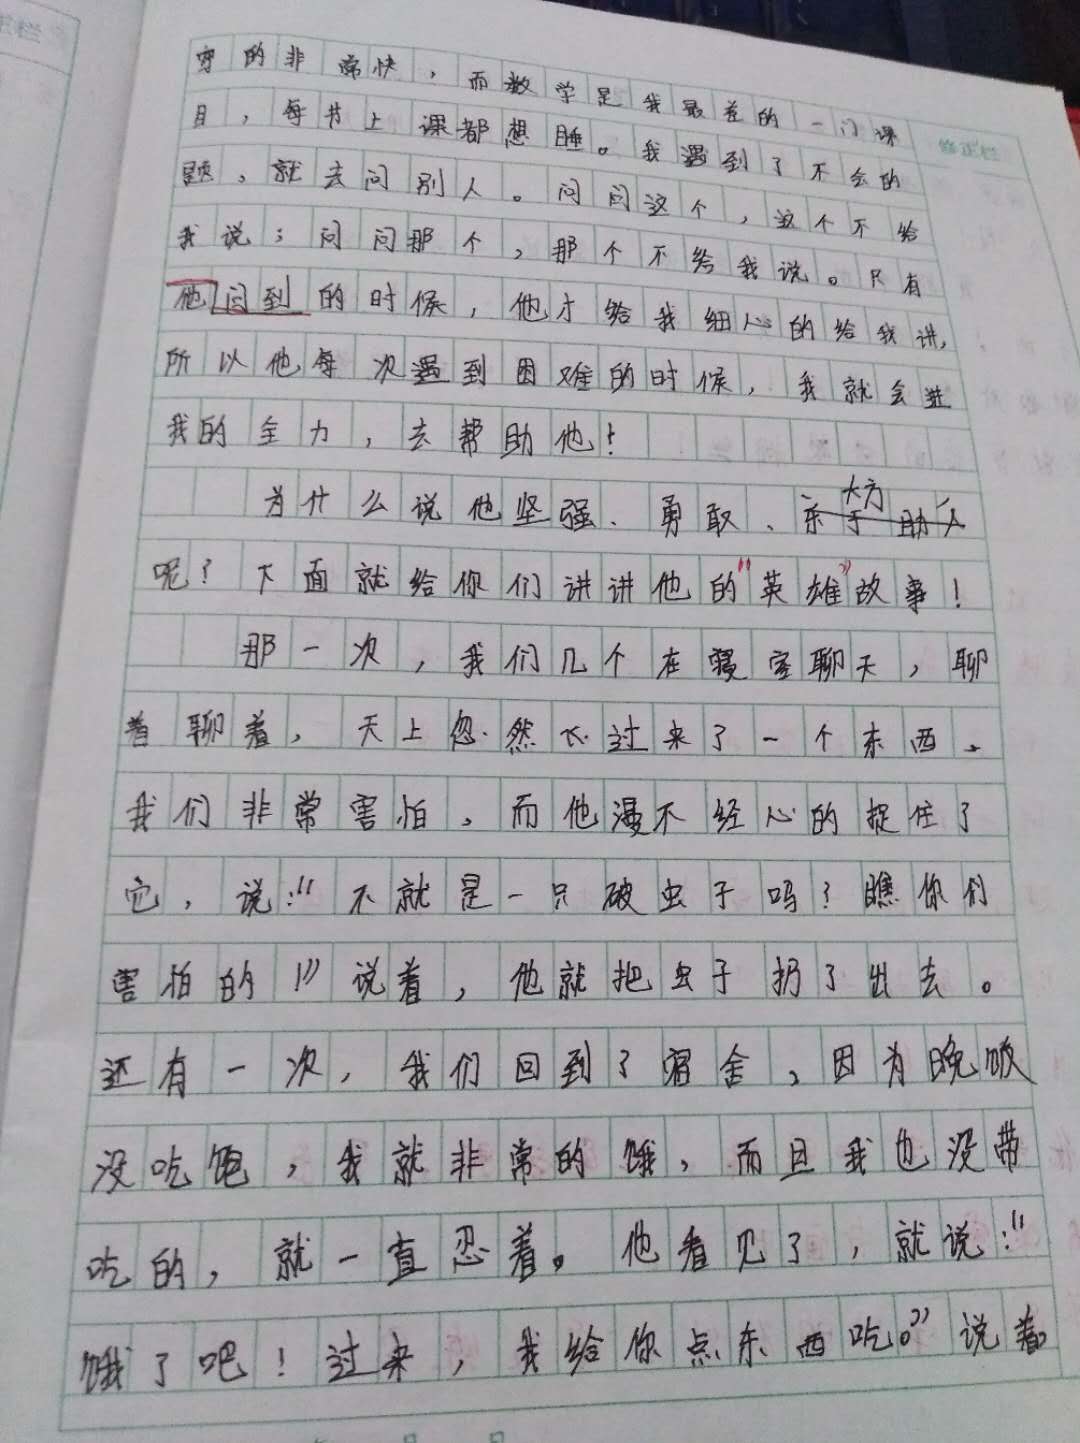 的非常快，而数学是我最差的一门课
目，每节上课都想睡。我遇到了不会的
题，就去问别人。问问这个，这个不给
我说；问问那个，那个不给我说。只有
他问到的时候，他才给我细心的给我讲，
所以他每次遇到困难的时候，我就会进
我的全力，去帮助他！
为什么说他坚强、勇敢、大方
呢？下面就给你们讲讲他的"英雄"故事！
那一次，我们几个在寝室聊天，聊
着聊着，天上忽然飞过来了一个东西、
我们非常害怕，而他漫不经心的捉住了
它，说："不就是一只破虫子吗？瞧你们
害怕的！"说着，他就把虫子扔了出去。
还有一次，我们回到了宿舍，因为晚饭
没吃饱，我就非常的饿，而且我也没带
吃的，就一直忍着。他看见了，就说："
饿了吧！过来，我给你点东西吃。"说着
修正栏